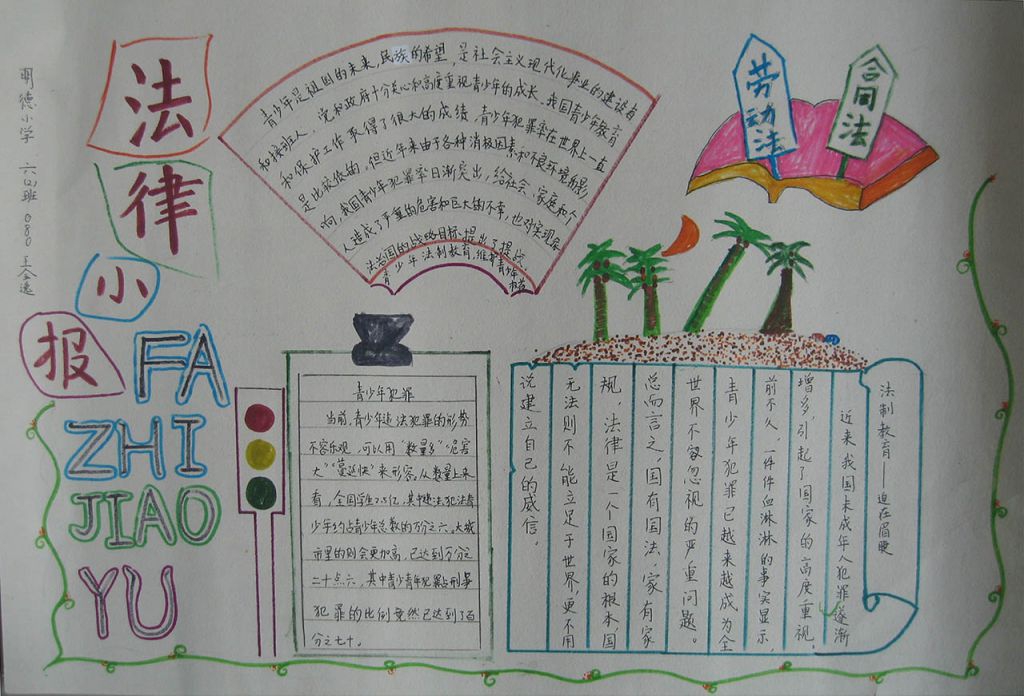 明德小学 六(2)班 080 王全逸
法
律
小
报
FA
ZHI
JIAO
YU
青少年是祖国的未来,民族的希望,是社会主义现代化事业的建设者
和接班人。党和政府十分关心和高度重视青少年的成长。我国青少年教育
和保护工作取得了很大的成绩。青少年犯罪率在世界上一直
是比较低的。但近年来由于各种消极因素和不良环境的影
响,我国青少年犯罪率日渐突出,给社会、家庭和个
人造成了严重的危害和巨大的不幸,也对实现依
法治国的战略目标提出了挑战。
青少年法制教育,维护青少年
权益
劳动法
合同法
青少年犯罪
当前,青少年违法犯罪的形势
不容乐观,可以用“数量多”“危害
大”“蔓延快”来形容,从数量上来
看,全国学生2.5亿,其中违法犯法青
少年约占青少年总数的万分之六,大城
市里的则会更加高,已达到万分之
二十点六,其中青少青年犯罪占刑事
犯罪的比例竟然已达到了百
分之七十。
法制教育——迫在眉睫
近来我国未成年人犯罪逐渐
增多引起了国家的高度重视,
前不久,一件件血淋淋的事实显示,
青少年犯罪已越来越成为全
世界不容忽视的严重问题。
总而言之,国有国法,家有家
规,法律是一个国家的根本,国
无法则不能立足于世界,更不用
说建立自己的威信。